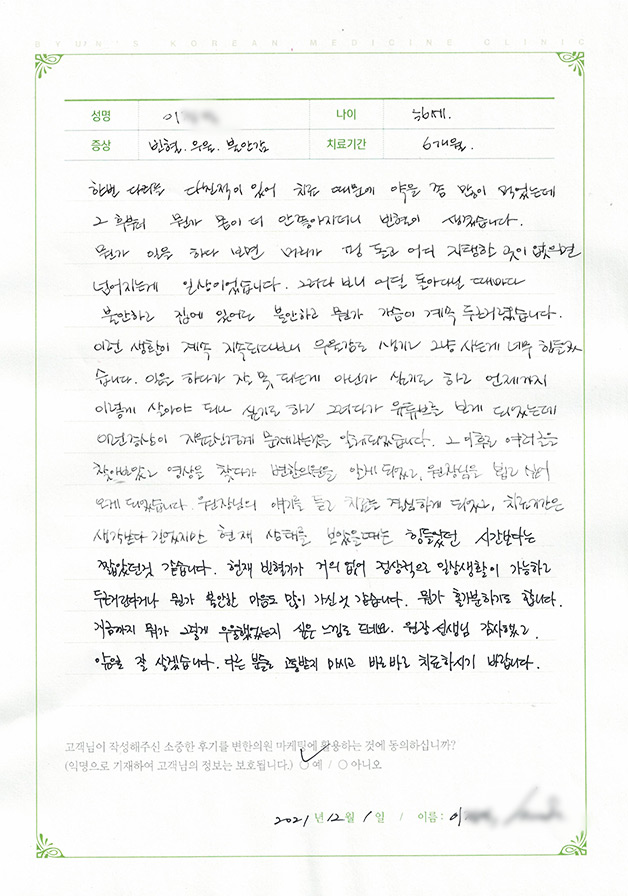 BYUN'S KOREAN MEDICINE CLINIC
성명 이 나이 46세.
증상 빈혈. 우울. 불안감 치료기간 6개월.
한번 다리를 다친적이 있어 치료 때문에 약을 좀 많이 먹었는데
그 후부터 뭔가 몸이 더 안좋아지더니 빈혈이 생겼습니다.
뭔가 일을 하다 보면 머리가 핑 돌고 어디 지탱할 곳이 없으면
넘어지는게 일상이었습니다. 그러다 보니 어딜 돌아다닐 때마다
불안하고 집에 있어도 불안하고 뭔가 가슴이 계속 두근거렸습니다.
이런 생활이 계속 지속되다보니 우울감도 생기고 그냥 사는게 너무 힘들었
습니다. 이음 하다가 잘못 되는게 아닌가 싶기도 하고 언제까지
이렇게 살아야 되나 싶기도 하고 그러다가 유튜브를 보게 되었는데
이런증상이 자율신경계 문제라는것을 알게되었습니다. 그 이후로 여러곳을
찾아보았고 영상을 찾다가 변한의원을 알게 되었고, 원장님을 뵙고 싶어
오게 되었습니다. 원장님의 얘기를 듣고 치료를 결심하게 되었고, 치료기간은
생각보다 길었지만 현재 상태를 보았을때는 힘들었던 시간보다는
짧았던것 같습니다. 현재 빈혈기가 거의 없어 정상적으로 일상생활이 가능하고
두근거린다거나 뭔가 불안한 마음도 많이 가신것 같습니다. 뭔가 홀가분하기도 합니다.
지금까지 뭐가 그렇게 우울했었는지 싶은 느낌도 드네요. 원장선생님 감사했고.
앞으로 잘 살겠습니다. 다른 분들도 고통받지 마시고 바로바로 치료하시기 바랍니다.
고객님이 작성해주신 소중한 후기를 변한의원 마케팅에 활용하는 것에 동의하십니까?
(익명으로 기재하여 고객님의 정보는 보호됩니다.) ○ 예 / ○ 아니오
2021 년 12 월 1 일 / 이름 : 이